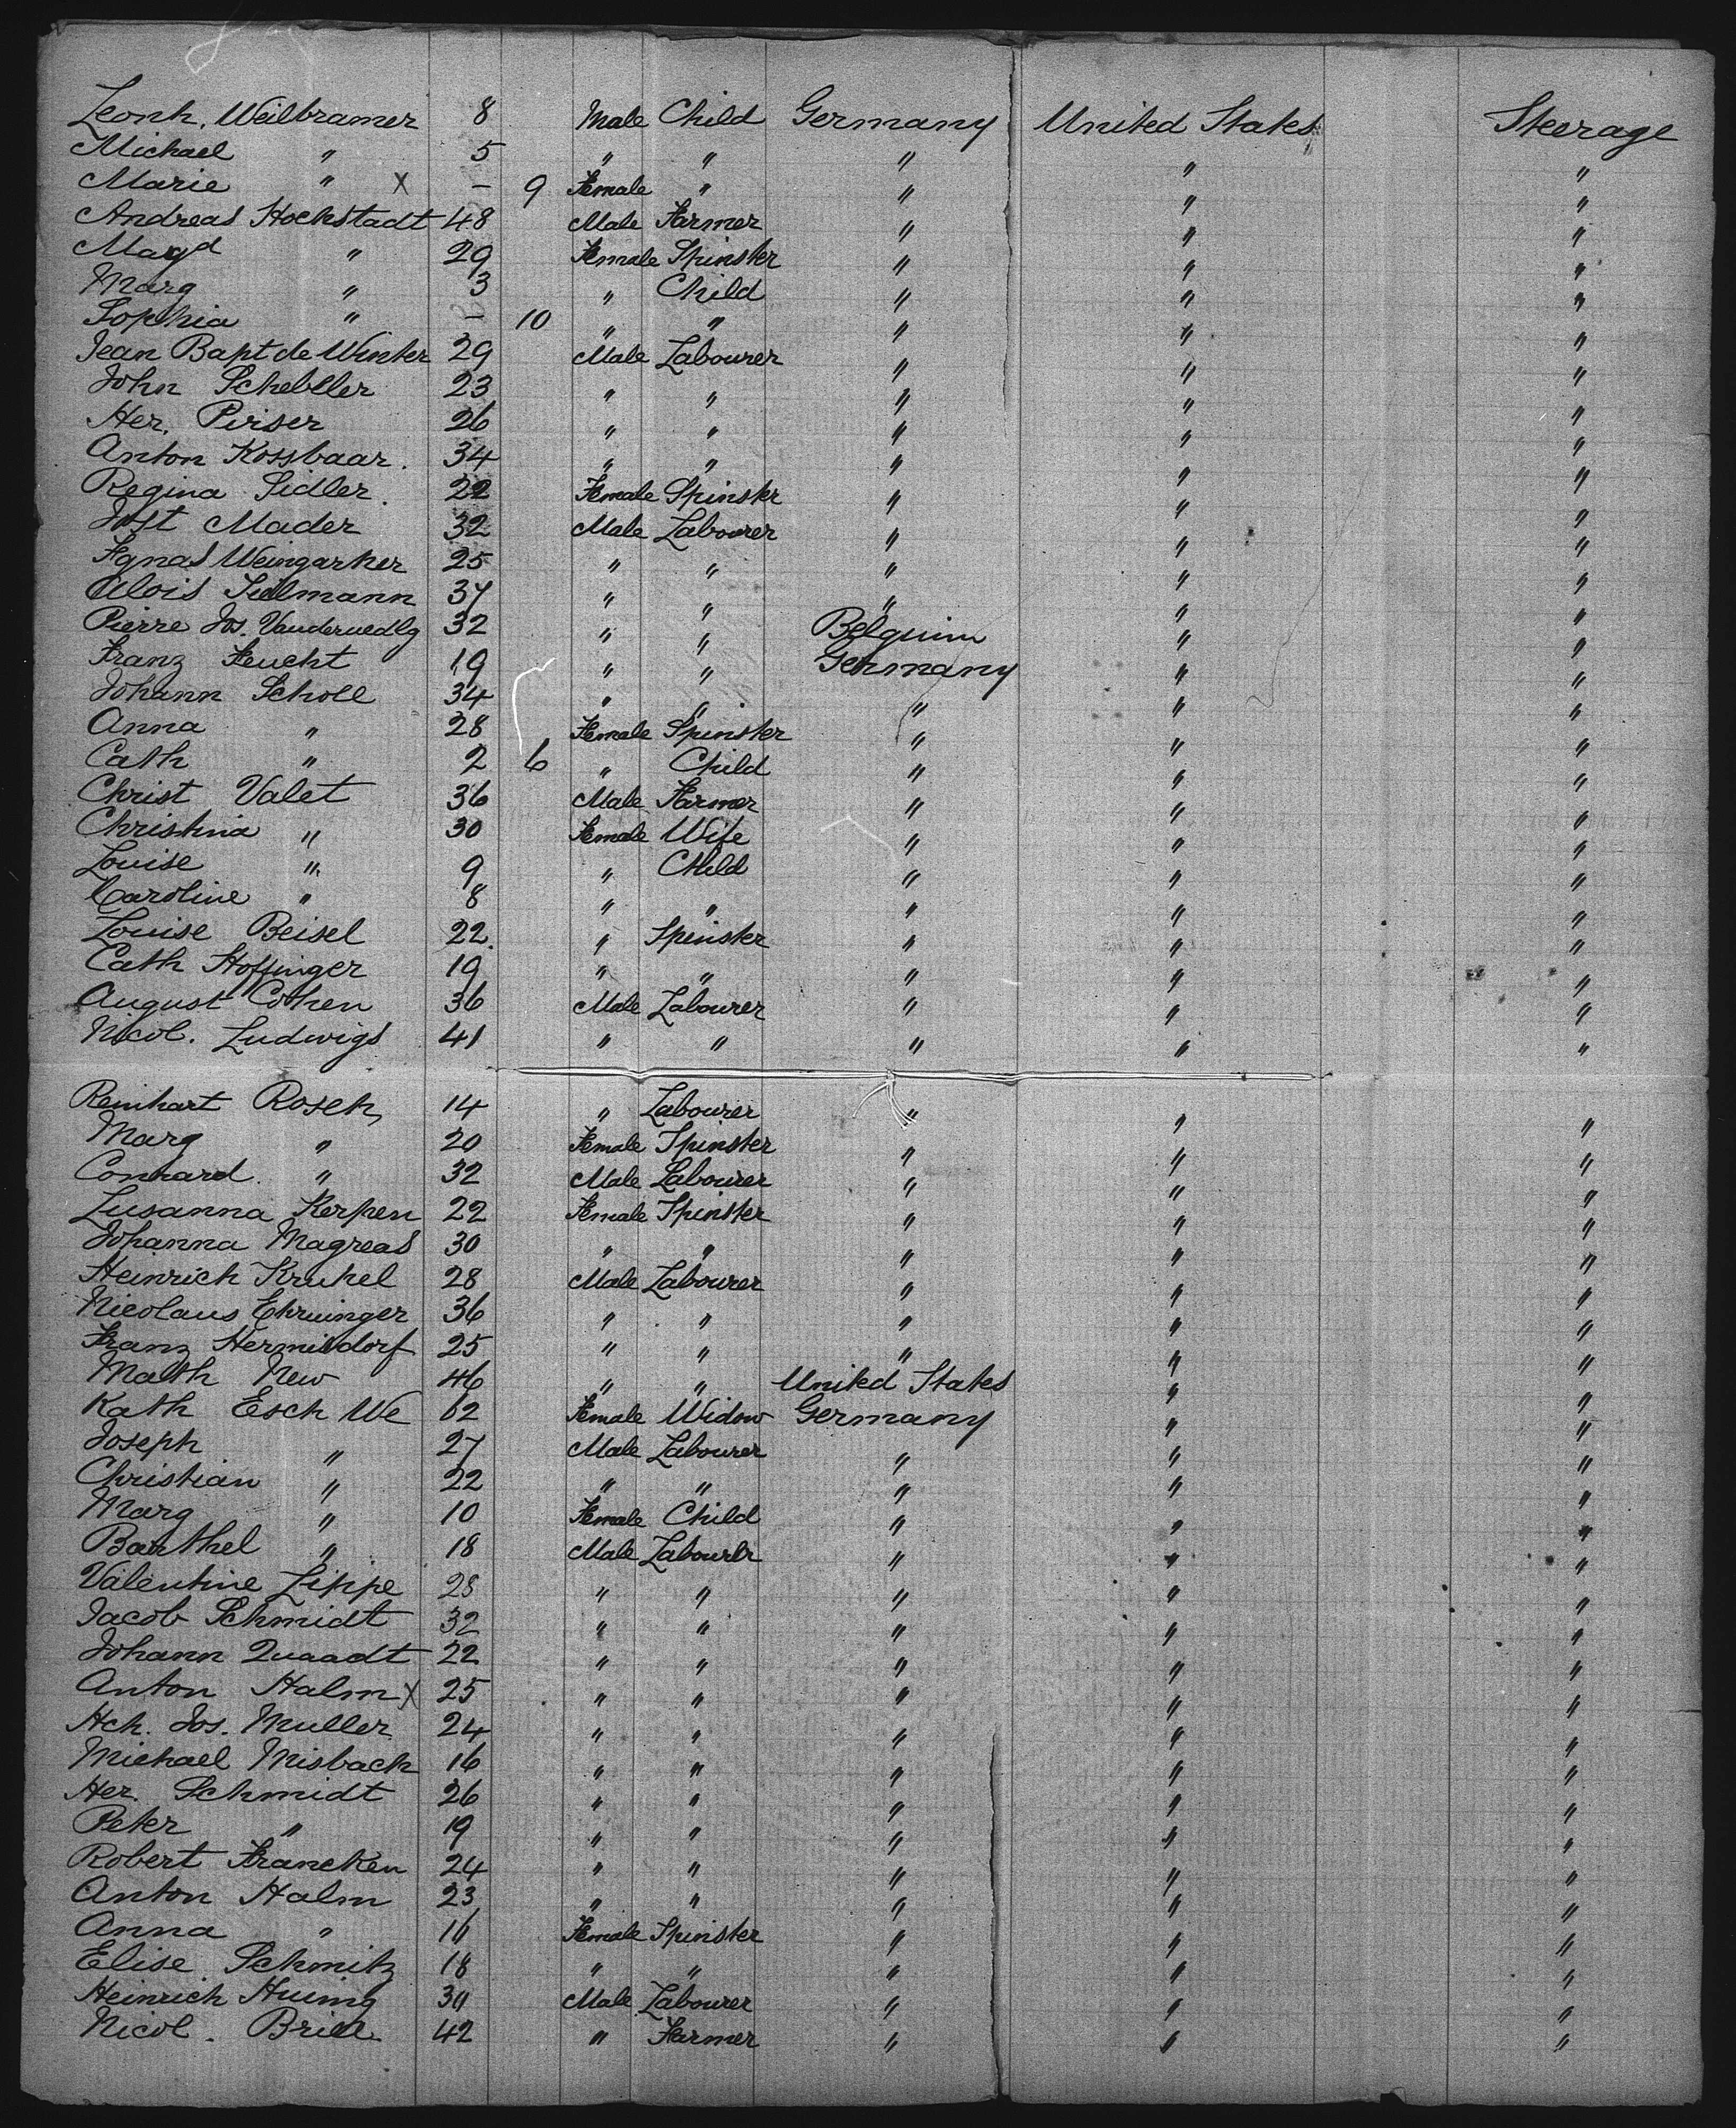 Leonh. Weilbramer 8 Male Child Germany United States Steerage
Michael " 5 " " " " "
Marie " X - 9 Female " " " "
Andreas Hochstadt 48 Male Farmer " " "
Magd " 29 Female Spinster " " "
Marg " 3 " Child " " "
Sophia " - 10 " " " " "
Jean Bapt de Winter 29 Male Labourer " " "
John Schebller 23 " " " " "
Her. Pirser 26 " " " " "
Anton Kossbaar. 34 " " " " "
Regina Sidler. 22 Female Spinster " " "
Jost Mader 32 Male Labourer " " "
Agnas Weingarther 25 " " " " "
Alois 37 " " " " "
Pierre Jos. 32 " " Belguim " "
Franz Feucht 19 " " Germany " "
Johann Scholl 34 " " " " "
Anna " 28 Female Spinster " " "
Cath " 2 6 " Child " " "
Christ Valet 36 Male Farmer " " "
Christina " 30 Female Wife " " "
Louise " 9 " Child " " "
Caroline " 8 " " " " "
Louise Beisel 22. " Spinster " " "
Cath Hoffinger 19 " " " " "
August Cohen 36 Male Labourer " " "
Nicol. Ludwigs 41 " " " " "
Reinhart Rosch 14 " Labourer " " "
Marg " 20 Female Spinster " " "
Conrard. " 32 Male Labourer " " "
Susanna Kerpen 22 Female Spinster " " "
Johanna Magreas 30 " " " " "
Heinrich Kruhel 28 Male Labourer " " "
Nicolaus Ehruinger 36 " " " " "
Franz Hermisdorf 25 " " " " "
Math New 46 " " United States " "
Kath Esch We 62 Female Widow Germany " "
Joseph " 27 Male Labourer " " "
Christian " 22 " " " " "
Marg " 10 Female Child " " "
Barthel " 18 Male Labourer " " "
Valentine Lippe 28 " " " " "
Jacob Schmidt 32 " " " " "
Johann Quaadt 22 " " " " "
Anton Halm X 25 " " " " "
Hch. Jos. Muller 24 " " " " "
Michael Misbach 16 " " " " "
Her. Schmidt 26 " " " " "
Peter " 19 " " " " "
Robert Francken 24 " " " " "
Anton Halm 23 " " " " "
Anna " 16 Female Spinster " " "
Elise Schmitz 18 " " " " "
Heinrich Huing Male Labourer " " "
Nicol. Brill 42 " Farmer " " "